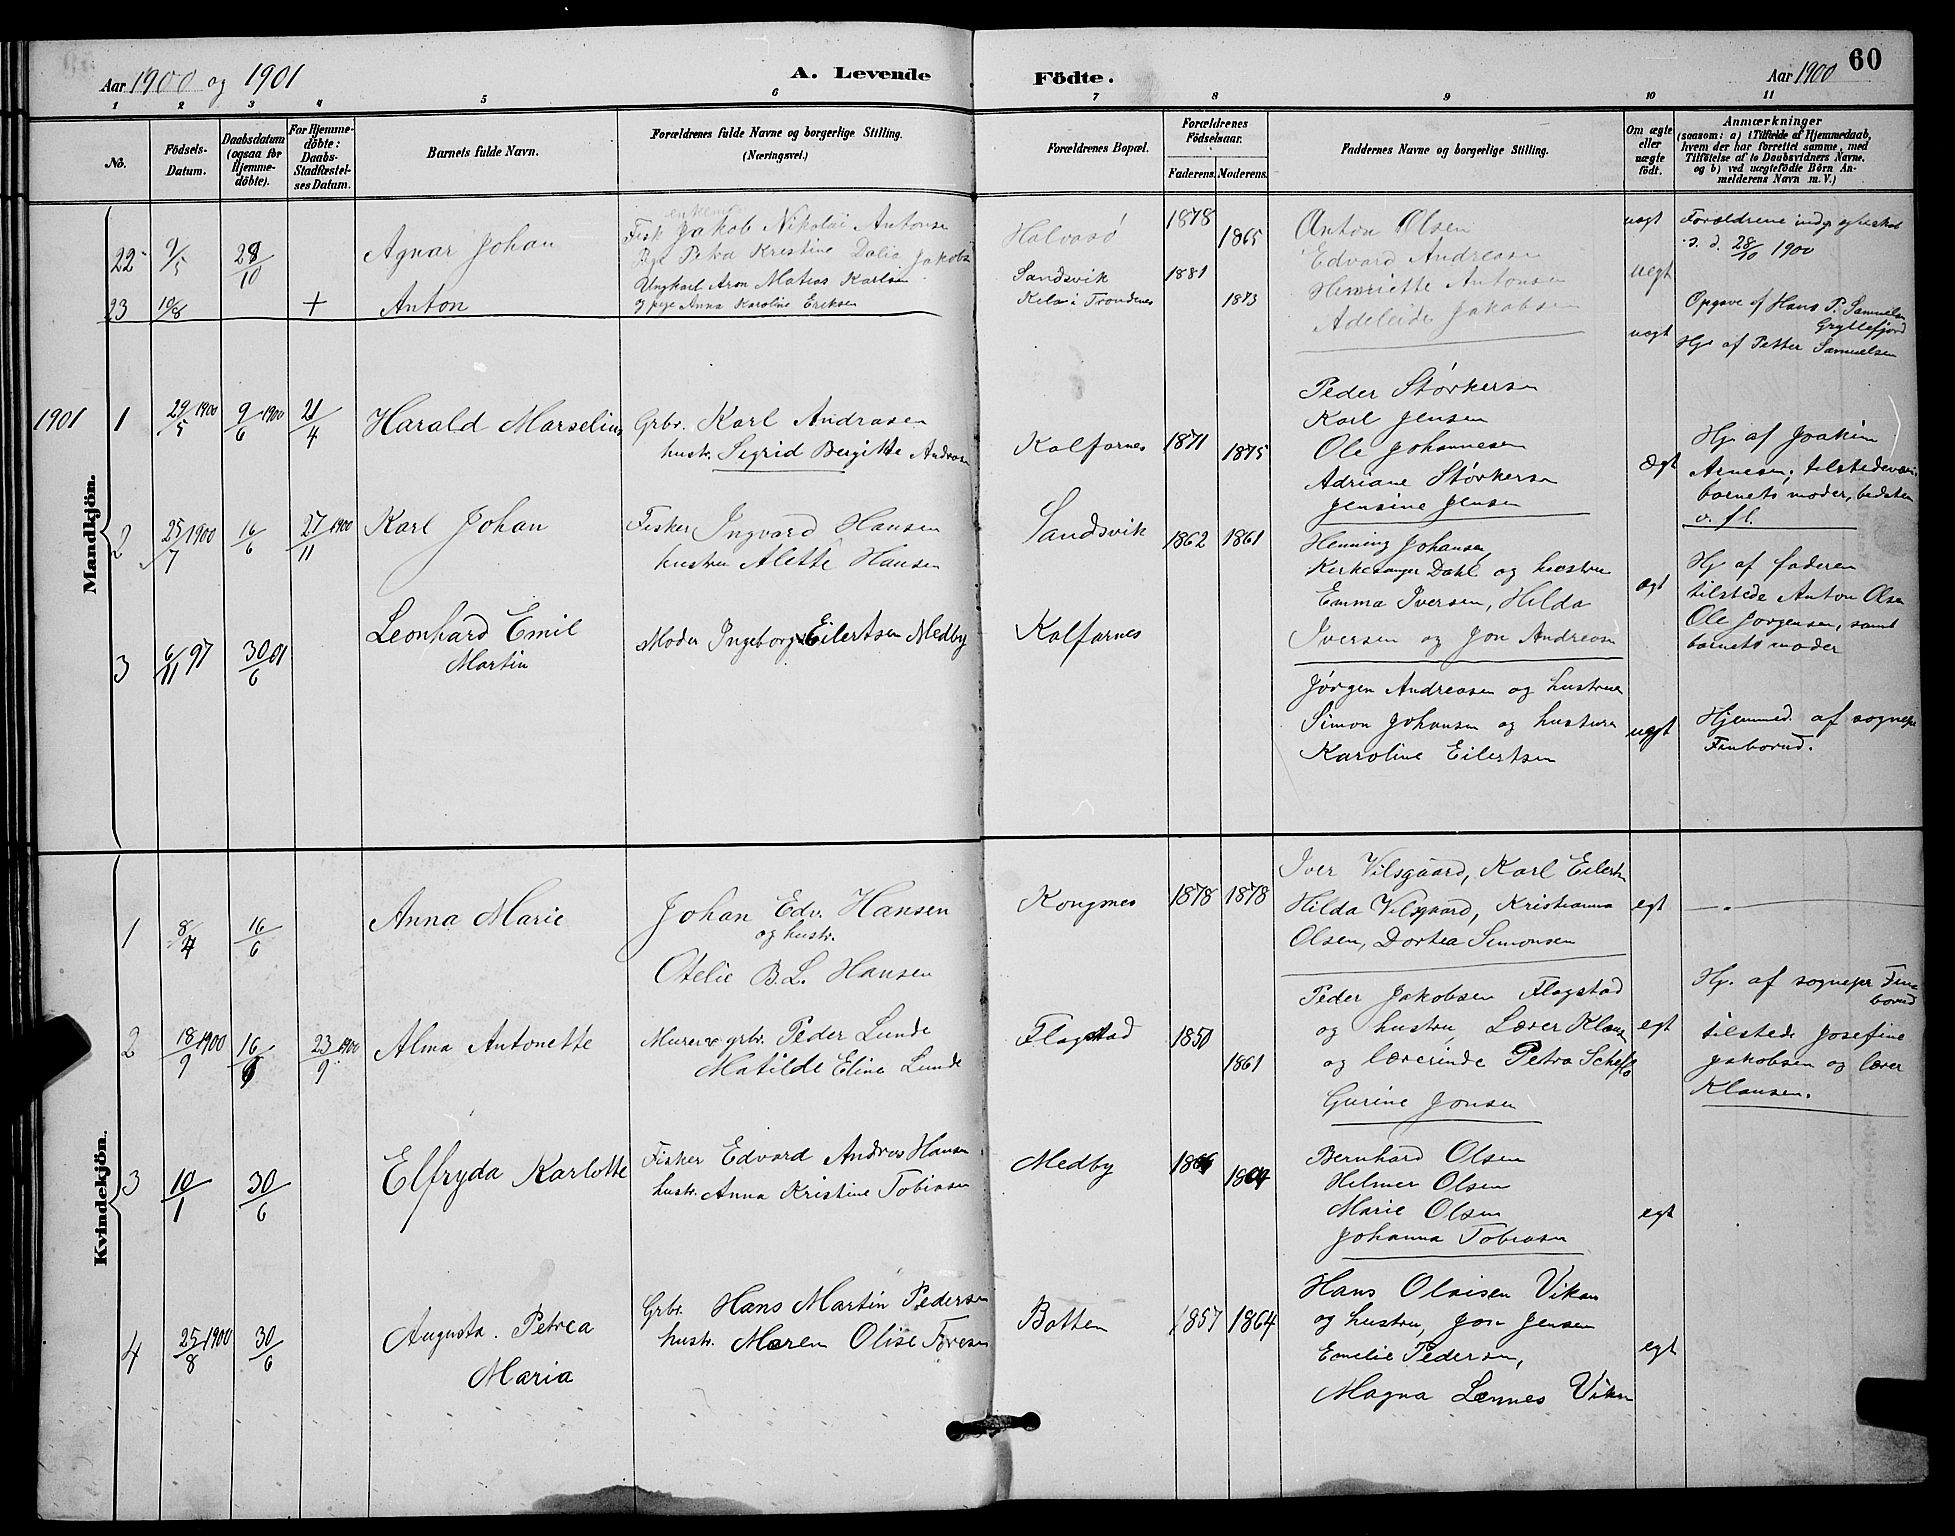 Aar 1900 og 1901
A. Levende Födte.
Aar 1900
60
1 2 3 4 5 6 7 8 9 10 11
No.
Födsels-Datum.
Daabsdatum (ogsaa for Hjemme-döbte).
For Hjemme-döbte: Daabs-Stadfæstel-ses Datum.
Barnets fulde Navn.
Forældrenes fulde Navne og borgerlige Stilling. (Næringsvei.)
Forældrenes Bopæl.
Forældrenes Födselsaar.
Faderens. Moderens.
Faddernes Navne og borgerlige Stilling.
Om ægte eller uægte födt.
Anmærkninger
(saasom: a) i Tilfælde af Hjemmedaab,
hvem der har forrettet samme, med
Tilföielse af to Daabsvidners Navne,
og b) ved uægtefödte Börn An-
melderens Navn m. V.)
Mandkjön.
22 9/5 28/10
Agnar Johan
Fisk Jakob Nikolai Antonsen
Petra Kristine Dalia Jakobs
Halvasö
1878 1865
Anton Olsen
Edvard Andreasen
Henriette Antonsen
Adeleide Jakobsen
uegt
Forældrene indg. egteskab
s. d. 28/10 1900
23 10/8 +
Anton
Ungkarl Aron Matias Karlsen
og pige Anna Karoline Eriksen
Sandsvik
Trondenes
1881 1873
uegt
uegt
Opgave af Hans P. Samuelsen
Gryllefjord
Hj. af Petter Samuelsen
1901
1 29/5 1900 9/6 1900 21/4
Harald Marselius
Grbr. Karl Andrasen
hustr. Sigrid Bergitte Andrasen
Kalfarnes
1871 1875
Peder Størkersen
Karl Jensen
Ole Johannesen
Adriane Størkersen
Jensine Jensen
Ægt
Hj. af Joakim
Arnesen; tilstedeværn.
barnets moder, bedsten
o. fl.
2 25/7 1900 16/6 27/11 1900
Karl Johan
Fisker Ingvard Hansen
hustru Alette Hansen
Sandsvik
1862 1861
Henning Johansen,
Kirkesanger Dahl og hustru
Emma Iversen, Hilda
Iversen og Jon Andreasen
ægt
Hj. af faderen
tilstede Anton Olsen
Ole Jørgensen, samt
barnets moder
3 6/11 97 30/6 01
Leonhard Emil
Martin
Moder Ingeborg Eilertsen Medby
Kalfarnes
Jørgen Andreasen og hustrue
Simon Johansen og husture
Karoline Eilertsen
uegt
Hjemmed. af sognepr
Finborud.
Kvindekjön.
1 8/4 16/6
Anna Marie
Johan Edv. Hansen
og hustr.
Otelie B. L. Hansen
Kongsnes
1878 1878
Iver Vilsgaard, Karl Eilertsen
Hilda Vilsgaard, Kristianna
Olsen, Dortea Simonsen
egt
— " —
2 18/9 1900 16/6 23/9 1900
Alma Antonette
Murer og grbr. Peder Lunde
Matilde Eline Lunde
Flagstad
1850 1861
Peder Jakobsen Flagstad
og hustru, Lærer Klausen
og lærerinde Petra Schelso
Gurine Jonsen
egt
Hj. af sognepr Fin-
borud
tilstede Josefine
Jakobsen og lærer
Klausen.
3 10/1 30/6
Elfryda Karlotte
Fisker Edvard Andreas Hansen,
hustr. Anna Kristine Tobiasen
Medby
Bernhard Olsen
Helmer Olsen
Marie Olsen
Johanna Tobiasen
egt
4 25/8 1900 30/6
Augusta. Petrea
Maria
Grbr. Hans Martin Pedersen
hustr. Maren Olise Toresen
Botten
1857 1864
Hans Olaisen Vikan
og hustru, Jon Jensen
Emelie Pedersen,
Magna Lænnes Vikan
egt